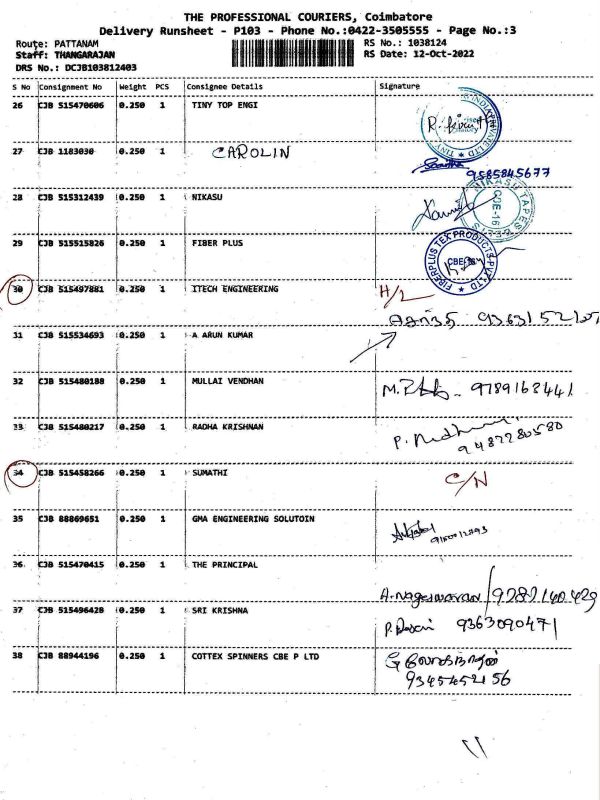 THE PROFESSIONAL COURIERS, Coimbatore
Delivery Runsheet - P103 - Phone No.:0422-3505555 - Page No.:3
Route: PATTANAM
RS No.: 1038124
Staff: THANGARAJAN
RS Date: 12-Oct-2022
DRS No.: DCJB103812403
S No Consignment No Weight PCS Consignee Details Signature
26 CJB 515470606 0.250 1 TINY TOP ENGI
27 CJB 1183030 0.250 1 CAROLIN
9585845677
28 CJB 515312439 0.250 1 NIKASU
NIKASU TAPES
29 CJB 515515826 0.250 1 FIBER PLUS
FIBERPLUS TEX PRODUCTS PVT LTD
30 CJB 515497881 0.250 1 ITECH ENGINEERING H/L
31 CJB 515534693 0.250 1 A ARUN KUMAR
32 CJB 515480188 0.250 1 MULLAI VENDHAN
9789168441
33 CJB 515480217 0.250 1 RADHA KRISHNAN
9487280580
34 CJB 515458266 0.250 1 SUMATHI C/N
35 CJB 88869651 0.250 1 GMA ENGINEERING SOLUTOIN
36 CJB 515470415 0.250 1 THE PRINCIPAL
A. Nageswaran
37 CJB 515496428 0.250 1 SRI KRISHNA
9363090471
38 CJB 88944196 0.250 1 COTTEX SPINNERS CBE P LTD
9345452156